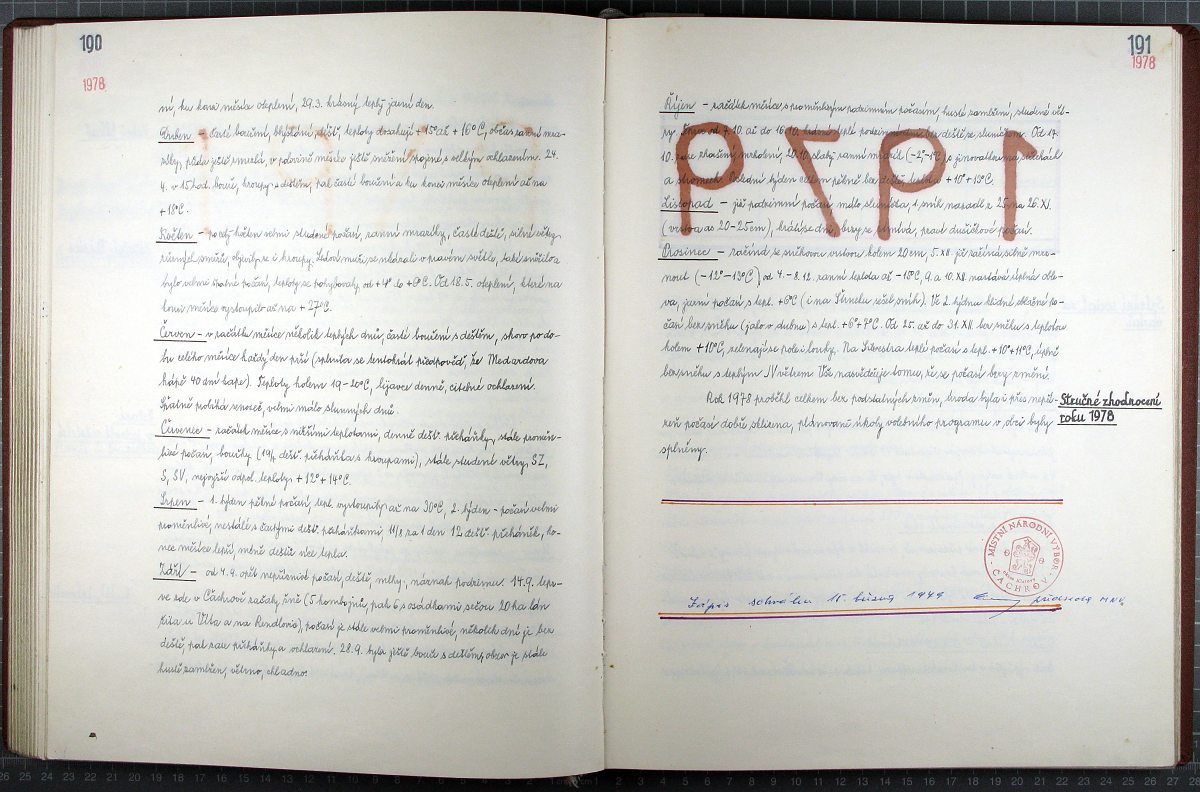 190
1978
ní, ku konci měsíce oteplení, 29.3. krásný teplý jarní den.
Duben - časté bouření, blýskání, déšť, teploty dosahují +15° až +16°C, občas ranní mra-
zíky, půda ještě zmrzlá, v polovině měsíce ještě sněžení spojené s velkým ochlazením. 24.
4. v 15 hod. bouře, kroupy s deštěm, pak časté bouření a ku konci měsíce oteplení až na
+18°C.
Květen - počátek května velmi studené počasí, ranní mrazíky, časté deště, silné větry
různých směrů, objevily se i kroupy. Ledoví muži se ukázali v pravém světle, také sněžilo a
bylo velmi špatné počasí, teploty se pohybovaly od +4° do +8°C. Od 18.5. oteplení, které na
konci měsíce vystoupilo až na +27°C.
Červen - v začátku měsíce několik teplých dnů, časté bouření s deštěm, skoro po do-
bu celého měsíce každý den prší (splnila se tentokrát předpověď, že Medardova
kápě 40 dní kape). Teploty kolem 19-20°C, lijavce denně, citelné ochlazení.
Špatně probíhá senoseč, velmi málo slunných dnů.
Červenec - začátek měsíce s nižšími teplotami, denně dešť. přeháňky, stále promě-
nlivé počasí, bouřky (19x dešť. přeháňka s kroupami), stále studené větry, SZ,
S, SV, nejvyšší odpol. teploty +12° +14°C.
Srpen - 1. týden pěkné počasí, tepl. vystoupily až na 30°C, 2. týden - počasí velmi
proměnlivé, nestálé s častými dešť. přeháňkami 11/8 za 1 den 12 dešť. přeháněk, ko-
nec měsíce lepší, méně deště více tepla.
Září - od 4.9. opět nepříznivé počasí, deště, mlhy, náznak podzimu. 14.9. tepr-
ve zde v Čachrově začaly žně (5 kombajnů, pak 6 s osádkami sečou 20 ha lán
žita u Vlta a na Rendlovic), počasí je stále velmi proměnlivé, několik dní je bez
deště, pak zase přeháňky a ochlazení. 28.9. byla ještě bouře s deštěm, obzor je stále
hustě zamžen, větrno, chladno.
191
1978
Říjen - začátek měsíce s proměnlivým podzimním počasím, husté zamžení, studené vět-
ry. od 7.10. až do 16.10. teplé podzimní bez deště se sluníčkem. Od 17.
10. zhoršení, mrholení, 20.10. slabý ranní mrazík (-2° -1°C), s jinovatkou na střechách
a stromech. Poslední týden celkem pěkně bez deště, teplota +10° +13°C.
Listopad - již podzimní počasí málo sluníčka, 1. sníh napadl z 25. na 26. XI.
(vrstva as 20-25cm), krátí se dny, brzy se stmívá, pravé dušičkové počasí.
Prosinec - začíná se sněhovou vrstvou kolem 20cm, 5. XII. již začíná silně mrz-
nout (-12° -13°C) od 4.-8.12. ranní teplota až -15°C, 9. a 10. XII. nastává úplná oble-
va, jarní počasí s tepl. +6°C (i na Špičáku zčel sníh). Též 2. týdnu klidné oblačné po-
časí bez sněhu (jako v dubnu) s tepl. +6° +7°C. Od 25. až do 31. XII. bez sněhu s teplotou
kolem +10°C, zelenají se pole i louky. Na Silvestra teplé počasí s tepl. +10° +11°C, úplně
bez sněhu s teplým JV větrem. Vše nasvědčuje tomu, že se počasí brzy změní.
Rok 1978 proběhl celkem bez podstatných změn, úroda byla i přes nepří-
zeň počasí dobře sklizena, plánované úkoly volebního programu v obci byly
splněny.
Stručné zhodnocení
roku 1978
MÍSTNÍ NÁRODNÍ VÝBOR
okres Klatovy
ČACHROV
Zápis schválen 15. března 1979 předseda MNV.